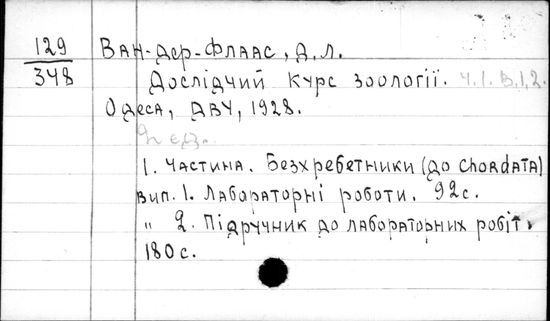 129
348
Ван-дер-Флаас, Д.Л.
Дослідчий курс зоології. Ч.1. В.1,2.
Одеса, ДВУ, 1928.
2 ед.
1. Частина. Безхребетники (до chordata)
вип. 1. Лабораторні роботи. 92 с.
" 2. Підручник до лабораторних робіт.
180 с.